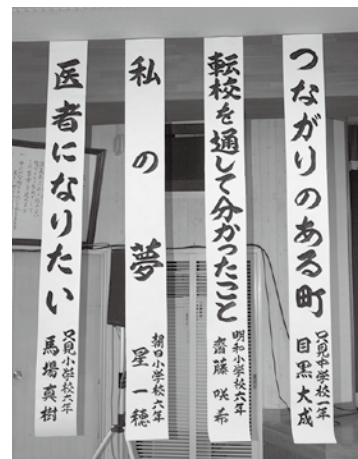 つながりのある町
只見中学校一年
目黒大成
転校を通して分かったこと
明和小学校六年
齋藤咲希
私の夢
朝日小学校六年
星一穂
医者になりたい
只見小学校六年
馬場真樹